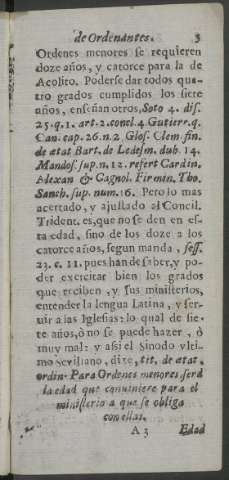 de Ordenantes. 3
Ordenes menores se requieren
doze años, y catorce para la de
Acolito. Poderse dar todos qua-
tro grados cumplidos los siete
años, enseñan otros, Soto 4. dis.
25. q. 1. art. 2. concl. 4. Gutierr. q.
Can. cap. 26. n. 2. Glos. Clem. fin.
de ætat Bart. de Ledesm. dub. 14.
Mandos. sup. n. 12. refert Cardin.
Alexan & Gagnol. Firmin. Tho.
Sanch. sup. num. 16. Pero lo mas
acertado, y ajustado al Concil.
Trident. es, que no se den en es-
ta edad, sino de los doze a los
catorce años, segun manda, sess.
23. c. 11. pues han de saber, y po-
der exercitar bien los grados
que reciben, y sus ministerios,
entender la lengua Latina, y ser-
uir a las Iglesias: lo qual de sie-
te años, ò no se puede hazer, ò
muy mal: y assi el Sinodo vlti-
mo Sevillano, dize, tit. de ætat.
ordin. Para Ordenes menores, serà
la edad que conuiniere para el
ministerio a que se obliga
con ellas.
A 3 Edad